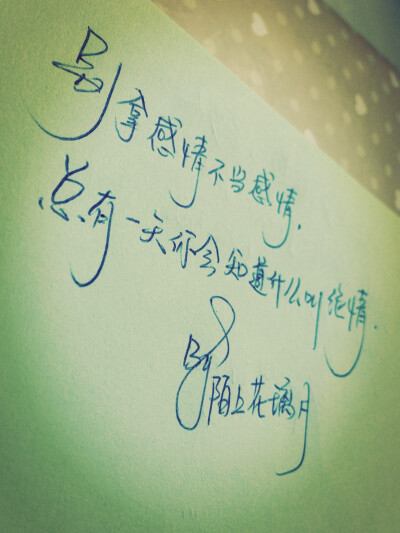 别拿感情不当感情.
总有一天你会知道什么叫绝情.
By
陌上花璃月